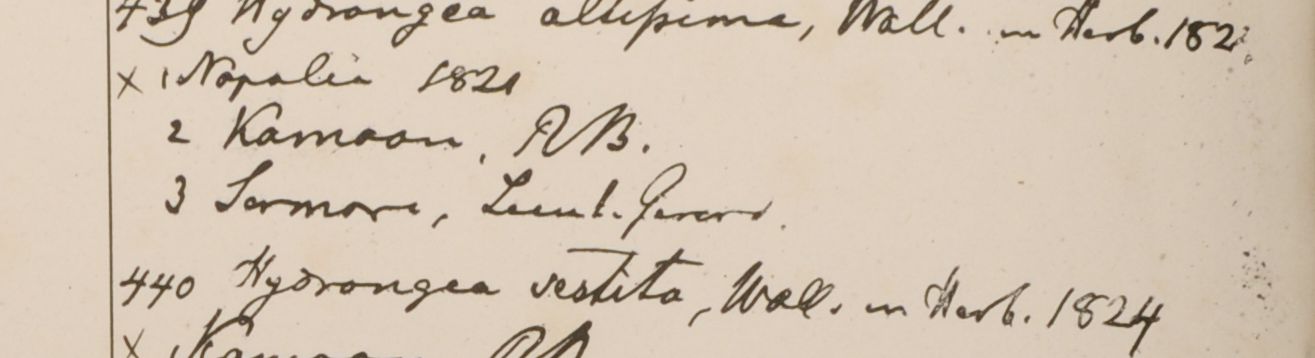 439 Hydrangea altissima, Wall. in Herb. 182
x 1 Napalia 1821
2 Kamaon, RB.
3 Sermore, Lieut. Gerard.
440 Hydrangea vestita, Wall. in Herb. 1824
x Kamaon RB